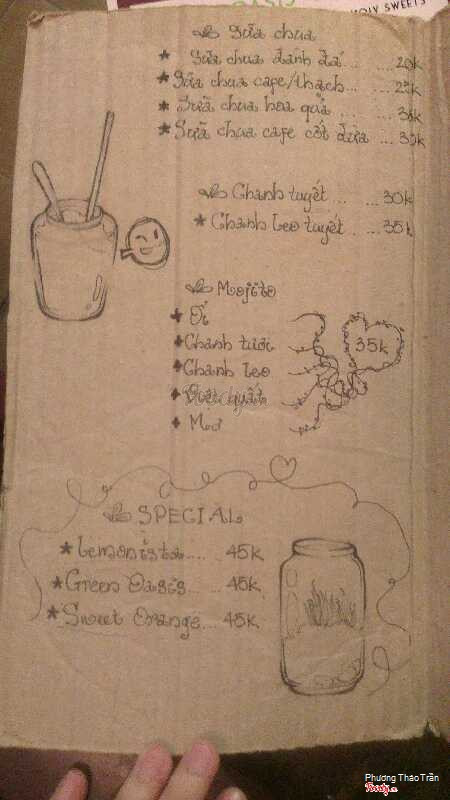 OLY SWEETS
Sữa chua
Sữa chua đánh đá ... 20k
Sữa chua cafe/thạch ... 25k
Sữa chua hoa quả ... 35k
Sữa chua cafe cốt dừa ... 35k
Chanh tuyết ... 30k
Chanh leo tuyết ... 35k
Mojito
Ổi
Chanh tươi
Chanh leo
Việt quất
Mơ
35k
SPECIAL
Lemonista ... 45k
Green Oasis ... 45k
Sweet Orange ... 45k
Phương Thảo Trần
Foody.vn